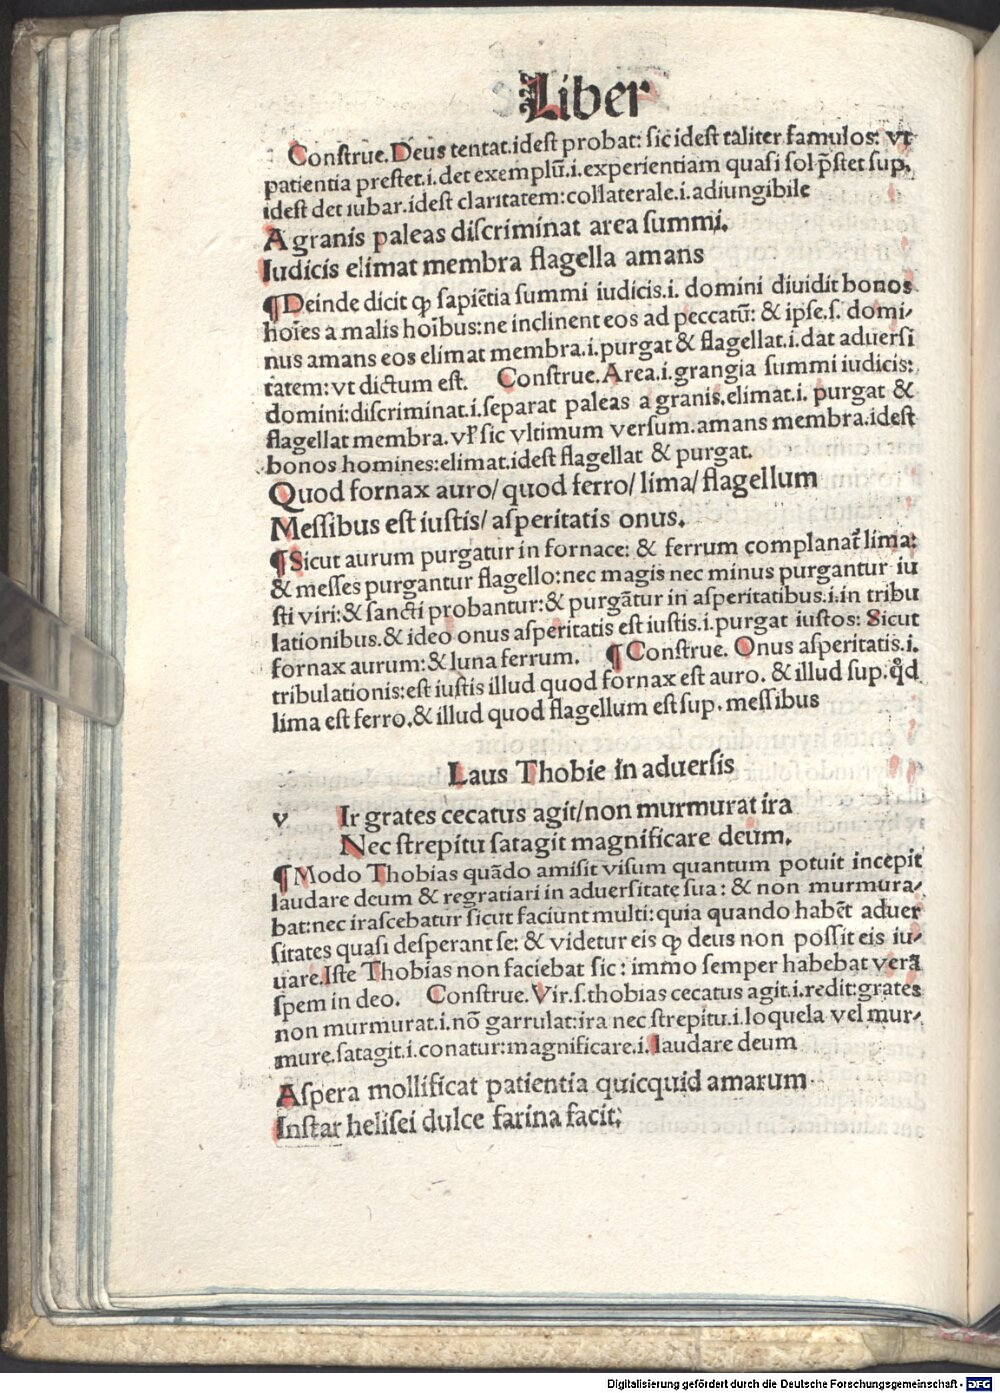 Liber
Construe.Deus tentat.idest probat: sic idest taliter famulos: vt
patientia prestet.i.det exemplū.i.experientiam quasi sol p̄stet sup.
idest det iubar.idest claritatem:collaterale.i.adiungibile
A granis paleas discriminat area summi.
Iudicis elimat membra flagella amans
¶Deinde dicit ꝙ sapiētia summi iudicis.i. domini diuidit bonos
hoīes a malis hoībus:ne inclinent eos ad peccatū: & ipse.s. domi⸗
nus amans eos elimat membra.i.purgat & flagellat.i.dat aduersi
tatem:vt dictum est. Construe.Area.i.grangia summi iudicis:
domini:discriminat.i.separat paleas a granis.elimat.i. purgat &
flagellat membra.vl̓ sic vltimum versum.amans membra.idest
bonos homines:elimat.idest flagellat & purgat.
Quod fornax auro/ quod ferro/ lima/ flagellum
Messibus est iustis/ asperitatis onus.
¶Sicut aurum purgatur in fornace: & ferrum complanat̄ lima:
& messes purgantur flagello:nec magis nec minus purgantur iu
sti viri:& sancti probantur:& purgātur in asperitatibus.i.in tribu
lationibus.& ideo onus asperitatis est iustis.i.purgat iustos: Sicut
fornax aurum:& luna ferrum. ¶Construe. Onus asperitatis.i.
tribulationis:est iustis illud quod fornax est auro. & illud sup.qd̄
lima est ferro.& illud quod flagellum est sup. messibus
Laus Thobie in aduersis
v Ir grates cecatus agit/non murmurat ira
Nec strepitu satagit magnificare deum.
¶Modo Thobias quādo amisit visum quantum potuit incepit
laudare deum & regratiari in aduersitate sua: & non murmura⸗
bat:nec irascebatur sicut faciunt multi:quia quando habēt aduer
sitates quasi desperant se: & videtur eis ꝙ deus non possit eis iu⸗
uare.Iste Thobias non faciebat sic: immo semper habebat verā
spem in deo. Construe.Vir.s.thobias cecatus agit.i.redit:grates
non murmurat.i.nō garrulat:ira nec strepitu.i.loquela vel mur⸗
mure.satagit.i.conatur:magnificare.i.laudare deum
Aspera mollificat patientia quicquid amarum
Instar helisei dulce farina facit:
Digitalisierung gefördert durch die Deutsche Forschungsgemeinschaft - DFG